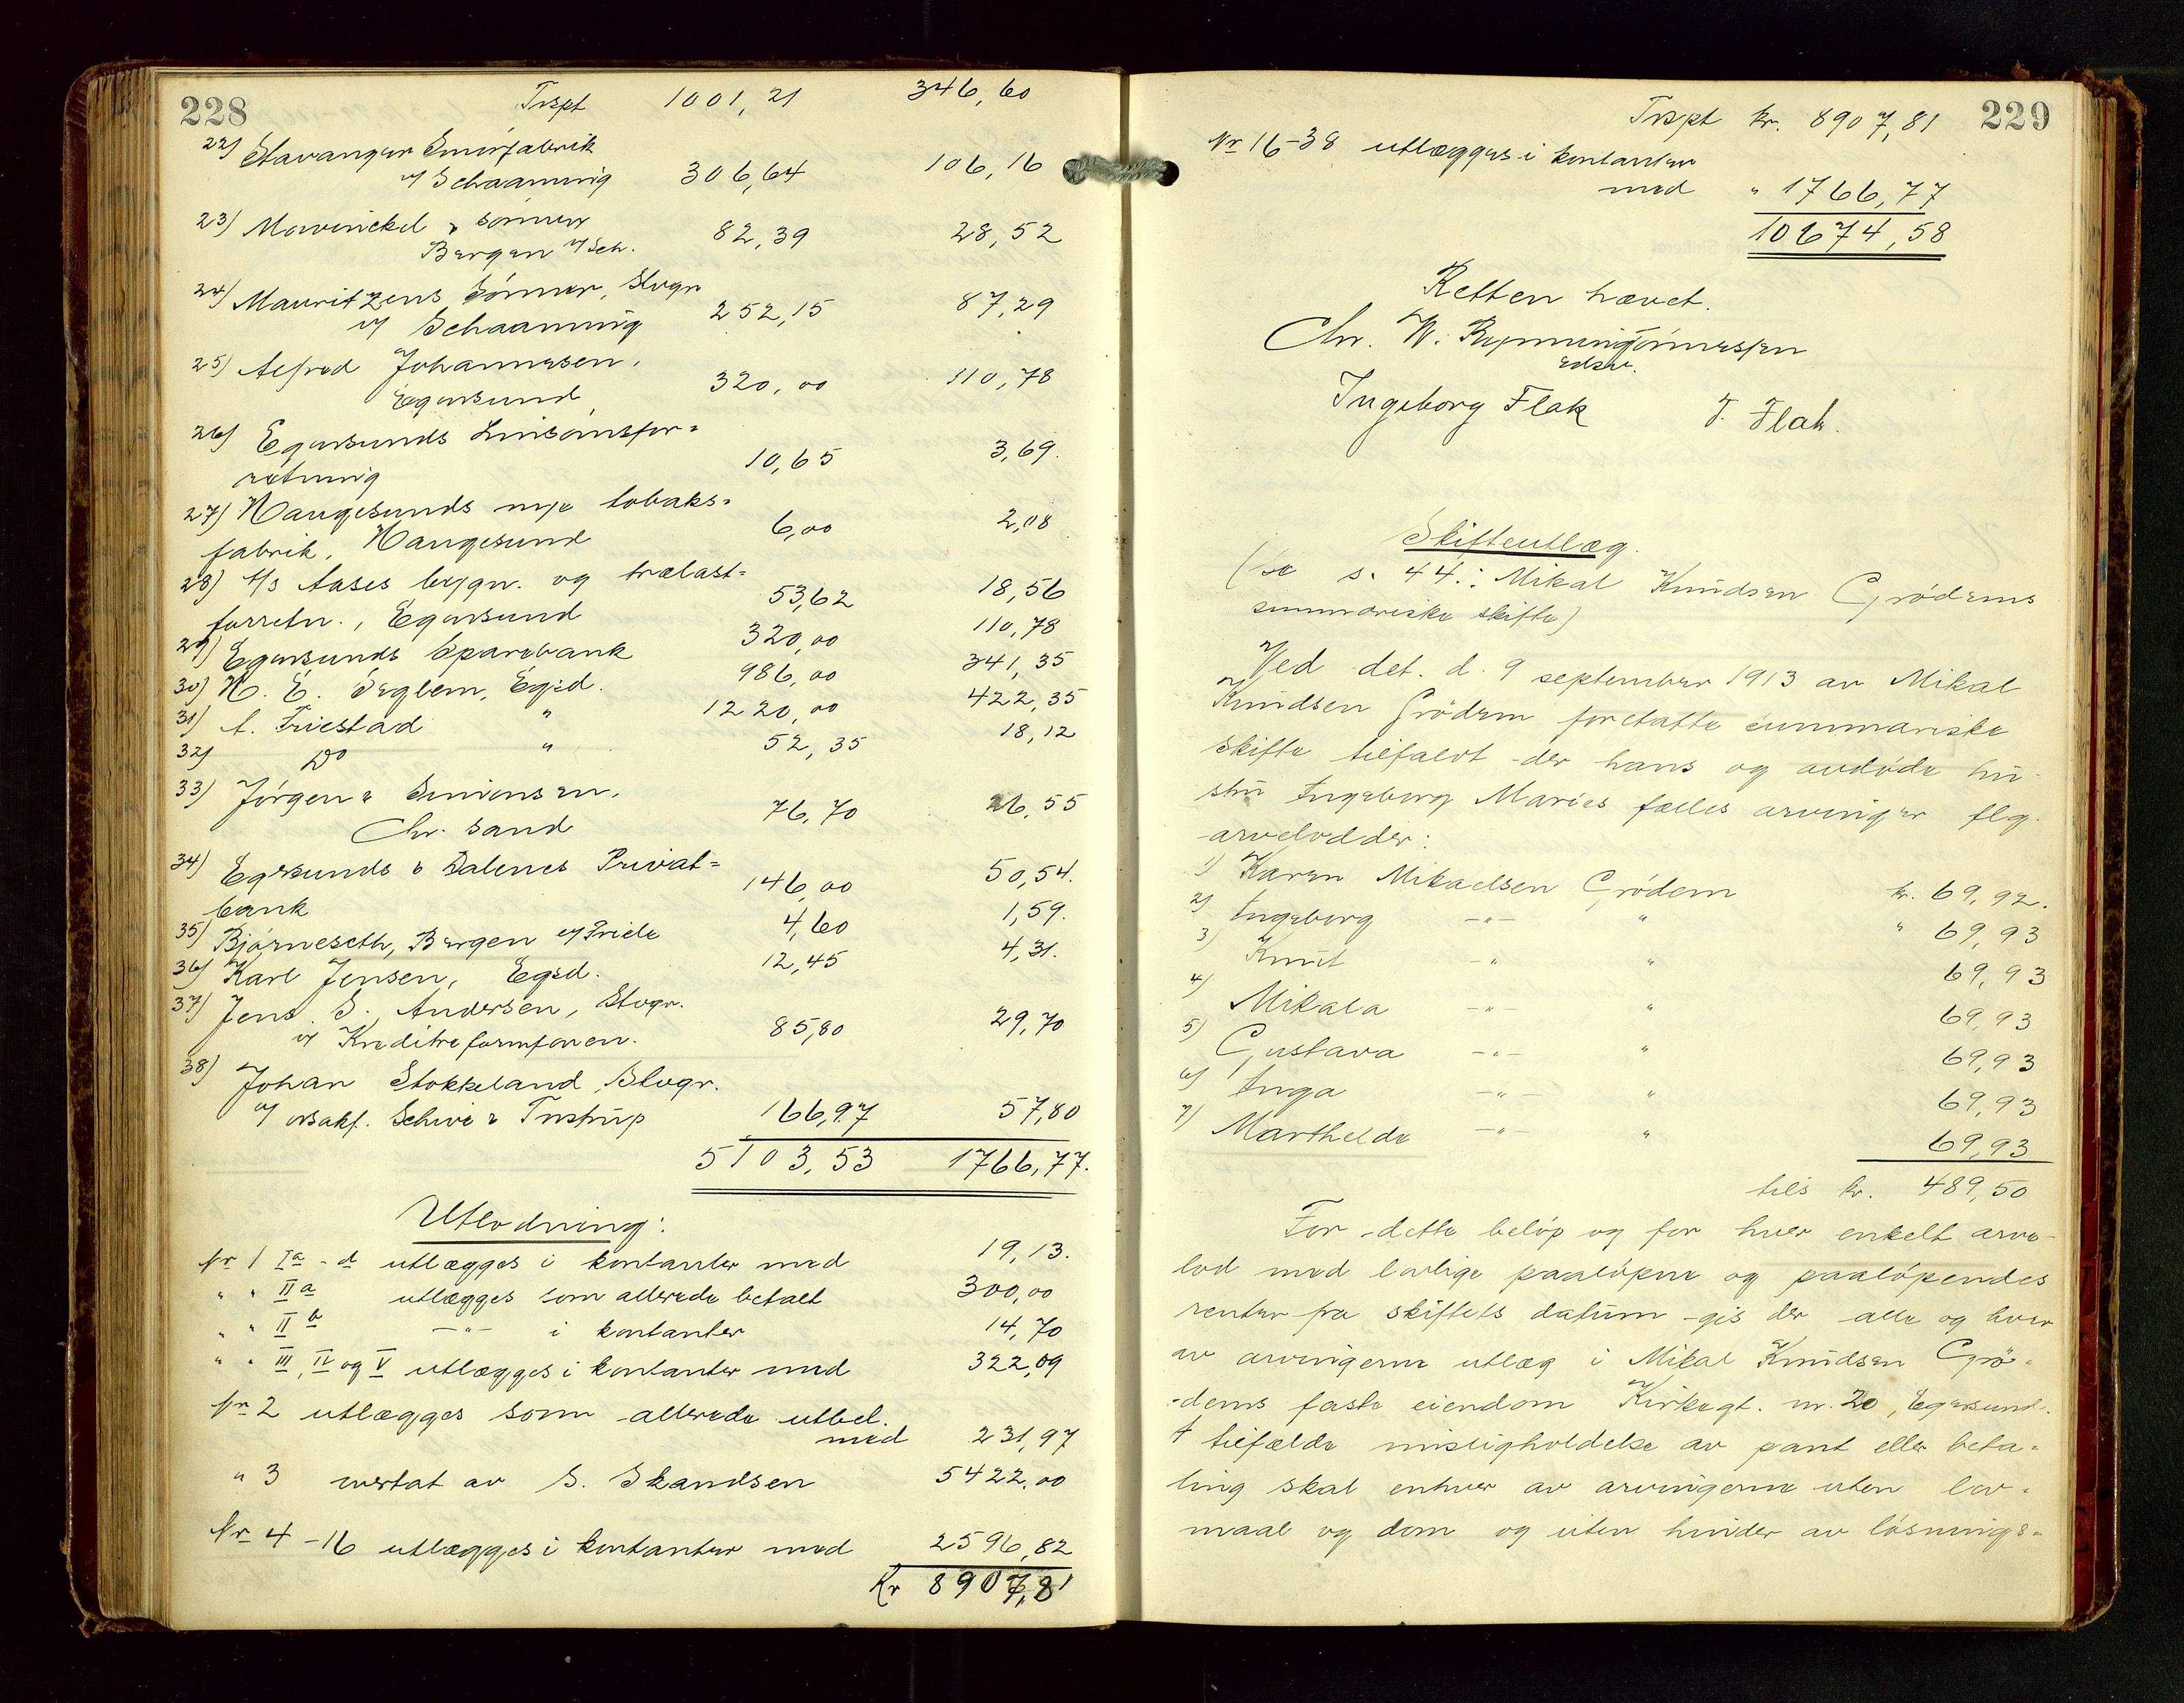 228
Trspt 1001,21 346,60
22) Stavanger Smörfabrik
v/ Schaanning 306,64 106,16
23) Mowinckel & sönner
Bergen v/ Sch. 82,39 28,52
24) Mauritzens Sönner, Stvgr
v/ Schaanning 252,15 87,29
25) Alfred Johannesen,
Egersund 320,00 110,78
26) Egersunds Linsömsfor=
retning 10,65 3,69.
27) Haugesunds nye tobaks=
fabrik, Haugesund 6,00 2,08
28) A/s Aases bygn. og trælast=
forretn., Egersund 53,62 18,56
29) Egersunds Sparebank 320,00 110,78
30) H. E. Seglem, Egsd. 986,00 341,35
31) A. Friestad " 1220,00 422,35
32) Do " 52,35 18,12
33) Jörgen Simonsen,
Chr. sand 76,70 26,55
34) Egersunds & Dalenes Privat=
bank 146,00 50,54.
35) Bjørneseth, Bergen v/ Friele 4,60 1,59.
36) Karl Jensen, Egsd. 12,45 4,31.
37) Jens S. Andersen, Stvgr.
v/ Kreditreformforen. 85,80 29,70
38) Johan Stokkeland, Stvgr.
v/ orsakf. Schive & Tastrup 166,97 57,80
5103,53 1766,77.
Utlodning:
Nr 1 Ia - d utlægges i kontanter med 19,13.
" " IIa utlægges som allerede betalt 300,00
" " IIb —"— i kontanter 14,70
" " III, IV og V utlægges i kontanter med 322,09
Nr 2 utlægges som allerede utbel.
med 231,97
" 3 overtat av S. Skandsen 5422,00
Nr 4 -16 utlægges i kontanter med 2596,82
Kr 8907,81
229
Trspt kr. 8907,81
Nr 16-38 utlægges i kontanter
med " 1766,77
10674,58
Retten hævet.
Chr. W. Rynning Tönnessen
edsv.
Ingeborg Flak T. Flak.
Skifteutlæg.
(se s. 44.: Mikal Knudsen Grödems
summariske skifte)
Ved det. d. 9 september 1913 av Mikal
Knudsen Grödem foretatte summariske
skifte tilfaldt der hans og avdöde hu-
stru Ingeborg Maries fælles arvinger flg.
arvelodder:
1) Karen Mikaelsen Grödem kr. 69,92.
2) Ingeborg —"— " " 69,93
3) Knut —"— " 69,93
4) Mikala —"— " 69,93
5) Gustava —"— " 69,93
6) Inga —"— " 69,93
7) Marthelde —"— " 69,93
tils kr. 489,50
For dette belöp og for hver enkelt arve-
lod med lovlige paalöpne og paalöpendes
renter fra skiftets datum gis der alle og hver
av arvingerne utlæg i Mikal Knudsen Grö-
dems faste eiendom Kirkegt. nr. 20, Egersund.
I tilfælde misligholdelse av pant eller beta=
ling skal enhver av arvingerne uten lov=
maal og dom og uten hinder av lösnings=